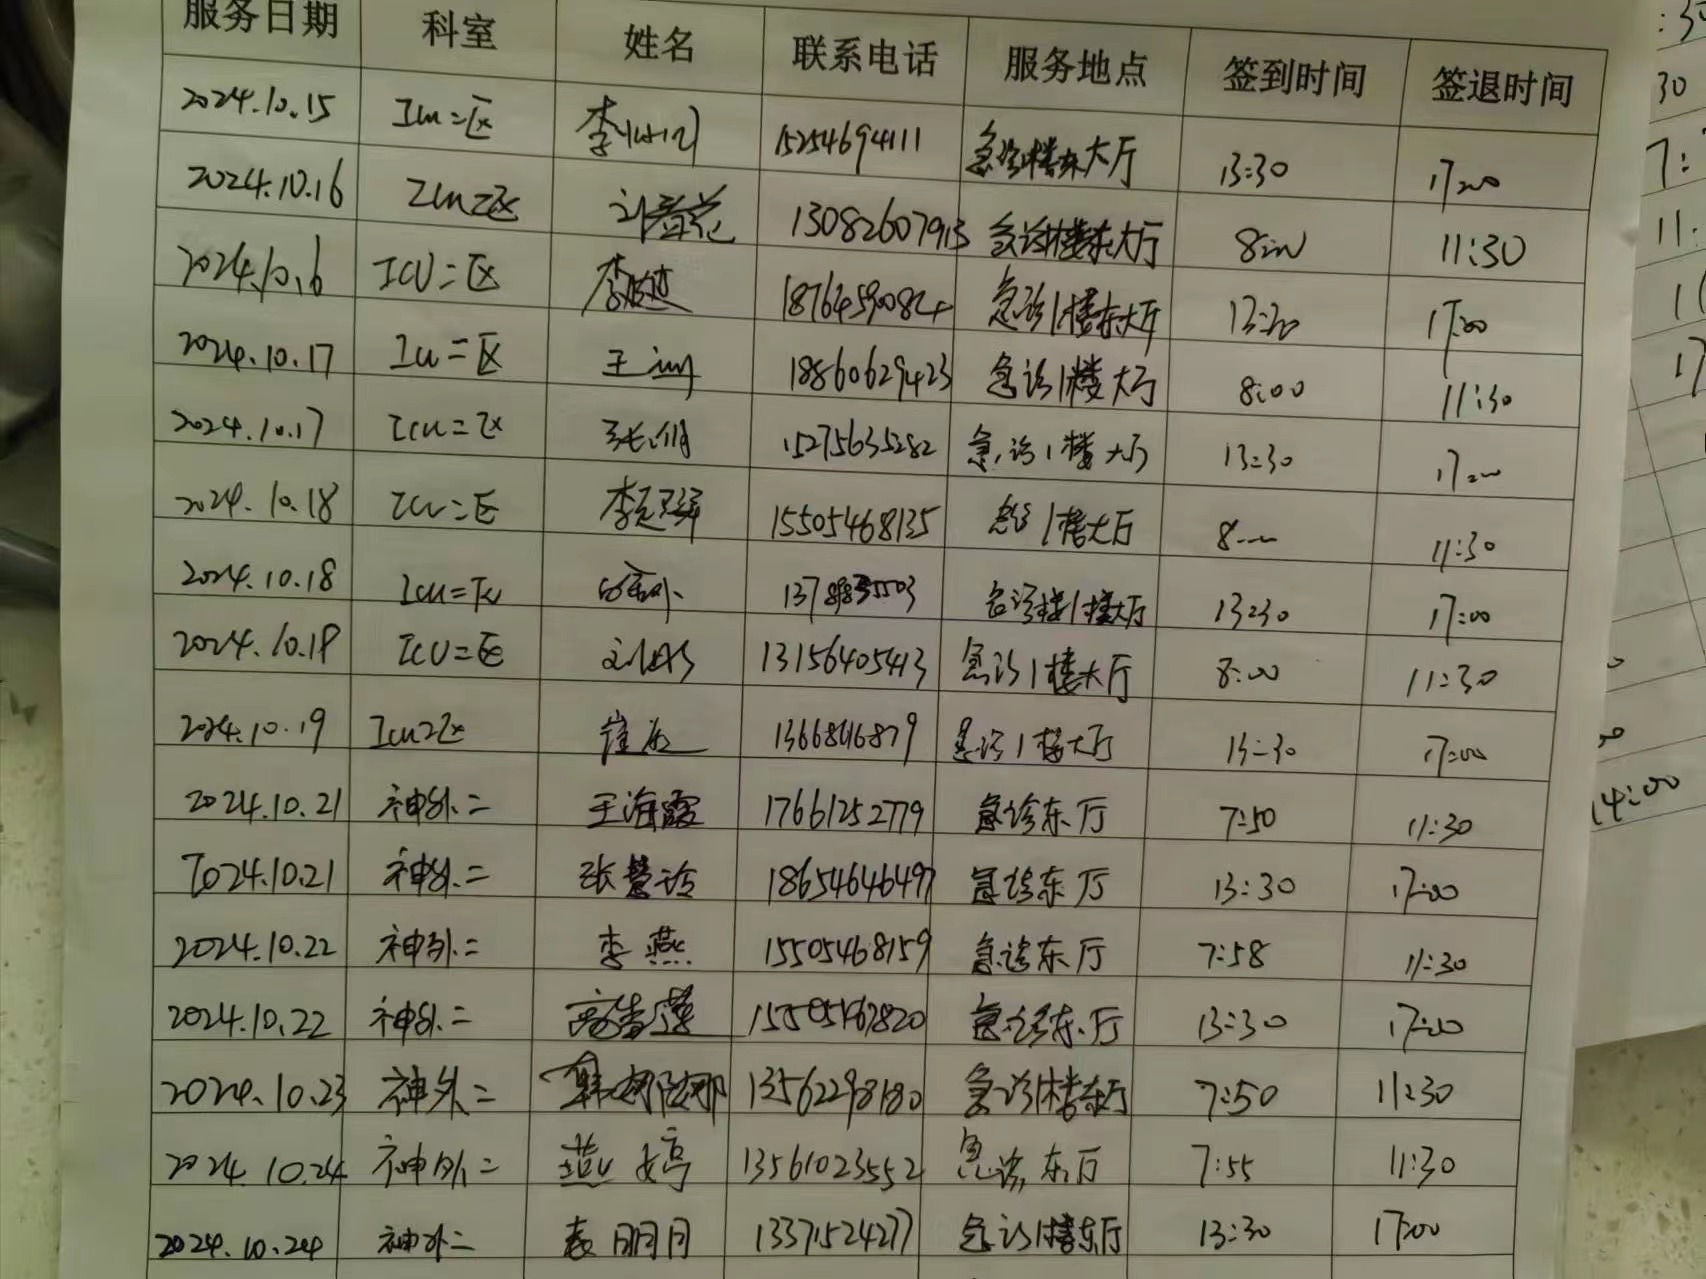 服务日期 科室 姓名 联系电话 服务地点 签到时间 签退时间
2024.10.15 Icu二区 李 15254694111 急诊楼东大厅 13:30 17:00
2024.10.16 Icu二区 刘春花 13082607913 急诊1楼东大厅 8:00 11:30
2024.10.16 ICU二区 李 18764590824 急诊1楼东大厅 13:30 17:00
2024.10.17 Icu二区 王 18860629423 急诊1楼大厅 8:00 11:30
2024.10.17 Icu二区 张 15275635282 急诊1楼大厅 13:30 17:00
2024.10.18 Icu二区 李 15505468135 急诊1楼大厅 8:00 11:30
2024.10.18 Icu二区 急诊楼1楼大厅 13:30 17:00
2024.10.19 ICU二区 刘 13156405413 急诊1楼大厅 8:00 11:30
2024.10.19 Icu二区 崔 急诊1楼大厅 13:30 17:00
2024.10.21 神外二 王海霞 17661252779 急诊东厅 7:50 11:30
2024.10.21 神外二 张慧玲 18654646497 急诊东厅 13:30 17:00
2024.10.22 神外二 李燕 15505468159 急诊东厅 7:58 11:30
2024.10.22 神外二 高 15505467820 急诊东厅 13:30 17:00
2024.10.23 神外二 韩娜娜 13562298180 急诊1楼东厅 7:50 11:30
2024.10.24 神外二 燕婷 13561023552 急诊东厅 7:55 11:30
2024.10.24 神外二 袁明月 13371524277 急诊1楼东厅 13:30 17:00
14:00